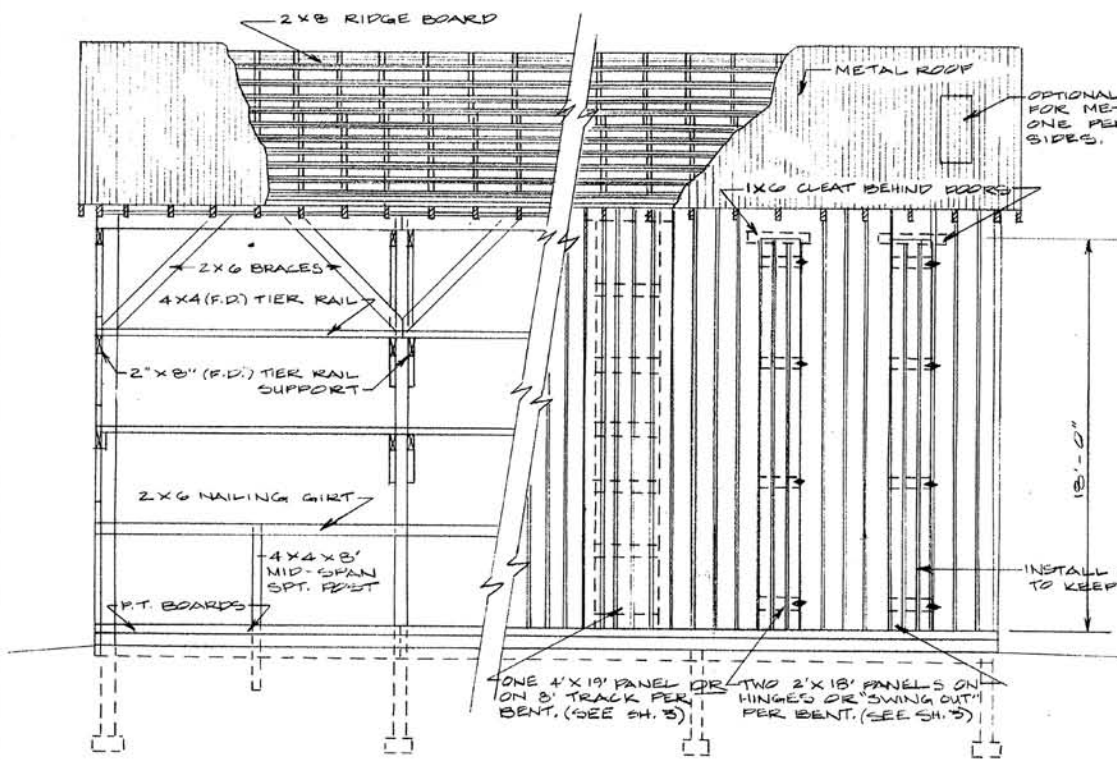 2 X 8 RIDGE BOARD
METAL ROOF
OPTIONAL
FOR ME-
ONE PER
SIDES.
1X6 CLEAT BEHIND DOORS
2X6 BRACES
4X4 (F.D.) TIER RAIL
2" X 8" (F.D.) TIER RAIL
SUPPORT
18'-0"
2X6 NAILING GIRT
4X4X8'
MID-SPAN
SPT. POST
INSTALL
TO KEEP
P.T. BOARDS
ONE 4' X 19' PANEL OR
ON 8' TRACK PER
BENT. (SEE SH. 3)
TWO 2' X 18' PANELS ON
HINGES OR "SWING OUT"
PER BENT. (SEE SH. 3)